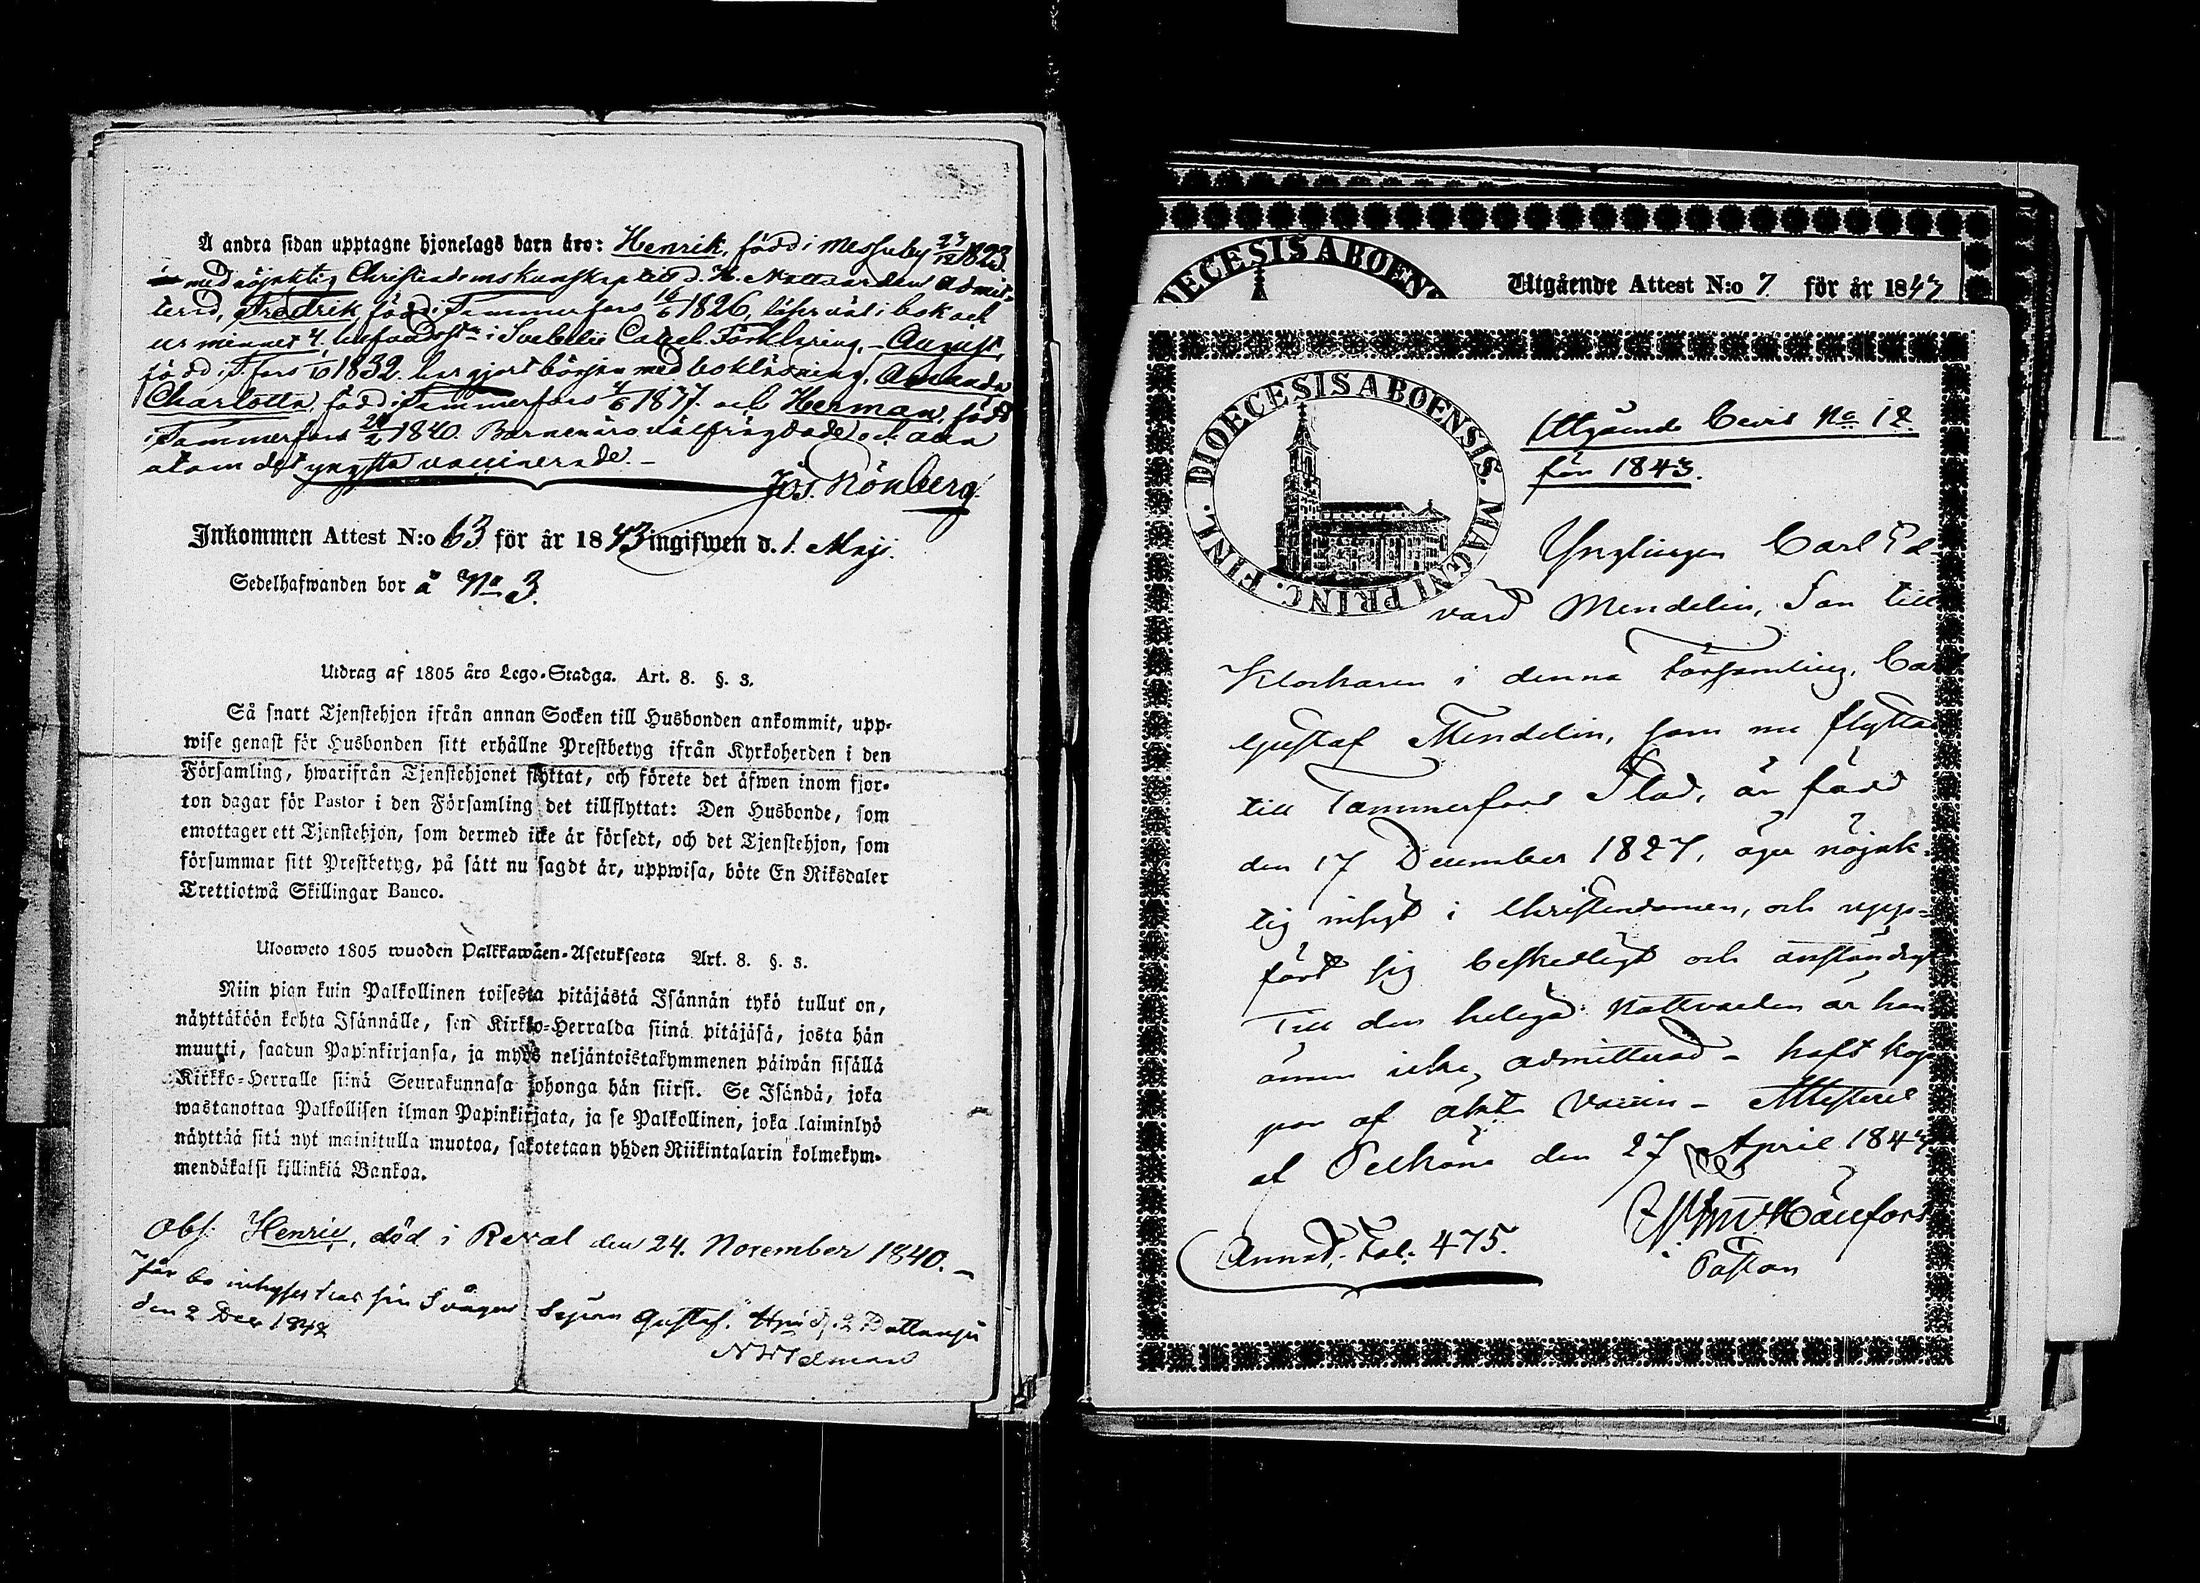 Å andra sidan upptagne hjonelags barn äro: Henrik, född i Messuby 23/12 1823.
med nöjaktig Christendomskunskap till d. H. Nattvarden admit-
terad, Fredrik född i Tammerfors 16/6 1826, läser väl i bok och
ur minnet 4 i Svebelii Catech. Förklaring, - August,
född i Tfors 1832. har gjort början med bokläsning, Amanda
Charlotta, född i Tammerfors 4/6 1837. och Herman, född
i Tammerfors 1840. Barnen äro välfrägdade och alla
utom det yngsta vaccinerade. -
Jos. Rönberg.
Inkommen Attest N:o 63 för år 1843 ingifwen d. 1. Maji.
Sedelhafwanden bor å No 3.
Utdrag af 1805 års Lego-Stadga. Art. 8. §. 3.
Så snart Tjenstehjon ifrån annan Socken till Husbonden ankommit, upp-
wise genast för Husbonden sitt erhållne Prestbetyg ifrån Kyrkoherden i den
Församling, hwarifrån Tjenstehjonet flyttat, och förete det äfwen inom fjor-
ton dagar för Pastor i den Församling det tillflyttat: Den Husbonde, som
emottager ett Tjenstehjon, som dermed icke är försedt, och det Tjenstehjon, som
försummar sitt Prestbetyg, på sätt nu sagdt är, uppwisa, böte En Riksdaler
Trettiotwå Skillingar Banco.
Ulosweto 1805 wuoden Palkkawäen-Asetuksesta Art. 8. §. 3.
Niin pian kuin Palkollinen toisesta pitäjästä Isännän tykö tullut on,
näyttäköön kohta Isännälle, sen Kirkko-Herralda siinä pitäjäsä, josta hän
muutti, saadun Papinkirjansa, ja myös neljäntoistakymmenen päiwän sisällä
Kirkko-Herralle siinä Seurakunnasa johonga hän siirsi. Se Isändä, joka
wastanottaa Palkollisen ilman Papinkirjata, ja se Palkollinen, joka laiminlyö
näyttää sitä nyt mainitulla muotoa, sakotetaan yhden Riikintalarin kolmekym-
mendäkaksi killinkiä Bankoa.
Obs: Henric, död i Reval den 24. November 1840. -
Får bo inhyses hos sin Svåger Gustaf.
den 2 Dec 1842
DIOECESIS ABOENSIS
Utgående Attest N:o 7 för år 1843
DIOECESIS ABOENSIS. MAGNI PRINC. FINL.
Utgående Bevis No 12
för 1843.
Ynglingen Carl Ed-
vard Mendelin, Son till
Klockaren i denna Församling, Carl
Gustaf Mendelin, som nu flyttar
till Tammerfors Stad, är född
den 17 December 1827, äger nöjak-
tig insigt i Christendomen, och upp-
fört sig beskedligt och anständigt
Till den heliga Nattvarden är han
ännu icke admitterad - haft kop-
por af äkta Vaccin - Attesterar
af Pelkäne den 27 April 1843
Pastor
Annot. Fol: 475.